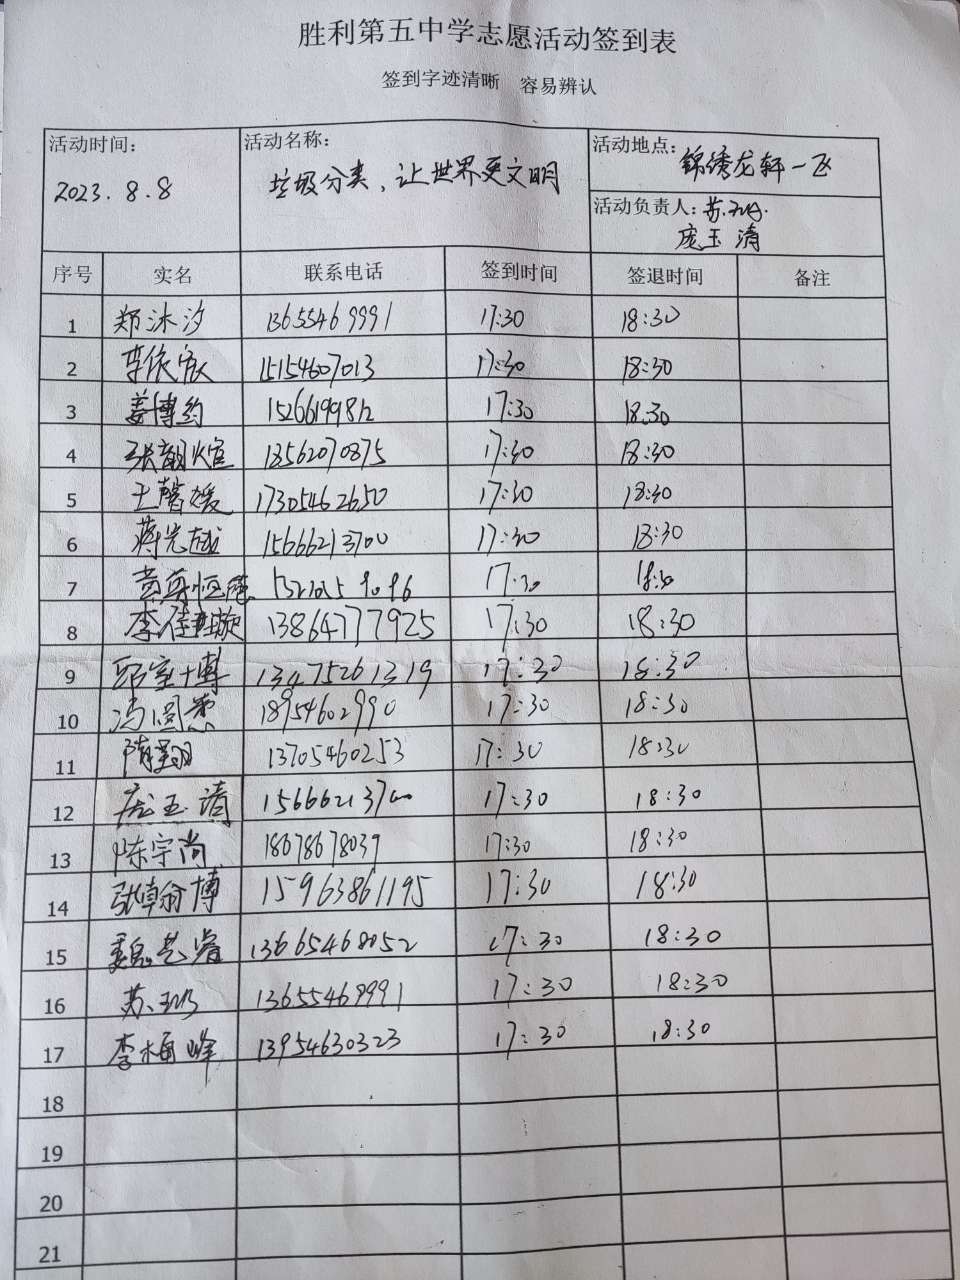 胜利第五中学志愿活动签到表
签到字迹清晰 容易辨认
活动时间： 活动名称： 活动地点：锦绣龙轩一区
2023.8.8 垃圾分类、让世界更文明
活动负责人：苏
庞玉清
序号 实名 联系电话 签到时间 签退时间 备注
1 郑沐汐 13655469991 17:30 18:30
2 李依宸 15154607013 17:30 18:30
3 姜博约 15266199812 17:30 18:30
4 张朝煊 18562070875 17:30 18:30
5 王馨媛 17305462650 17:30 18:30
6 蒋先越 15666213700 17:30 18:30
7 17:30 18:30
8 李佳璇 13864777925 17:30 18:30
9 邱室博 13475261319 17:30 18:30
10 冯圆惠 18954602990 17:30 18:30
11 隋翔 13705460253 17:30 18:30
12 庞玉清 15666213700 17:30 18:30
13 陈宇尚 18678678039 17:30 18:30
14 张倬翁博 15963861195 17:30 18:30
15 魏艺睿 13665468052 17:30 18:30
16 苏 13655469991 17:30 18:30
17 李梅峰 13954630323 17:30 18:30
18
19
20
21